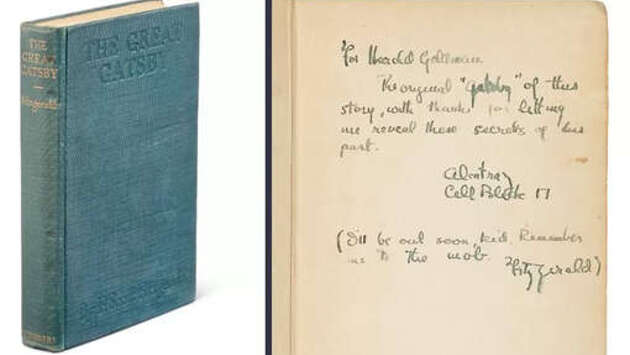 THE
GREAT
GATSBY
Fitzgerald
SCRIBNERS
THE GREAT
GATSBY
For Harold Goldman
The original "Gatsby" of this
story, with thanks for letting
me reveal these secrets of his
past.
Alcatraz
Cell Block 17
(I'll be out soon, kid. Remember
me to the mob. Fitzgerald)